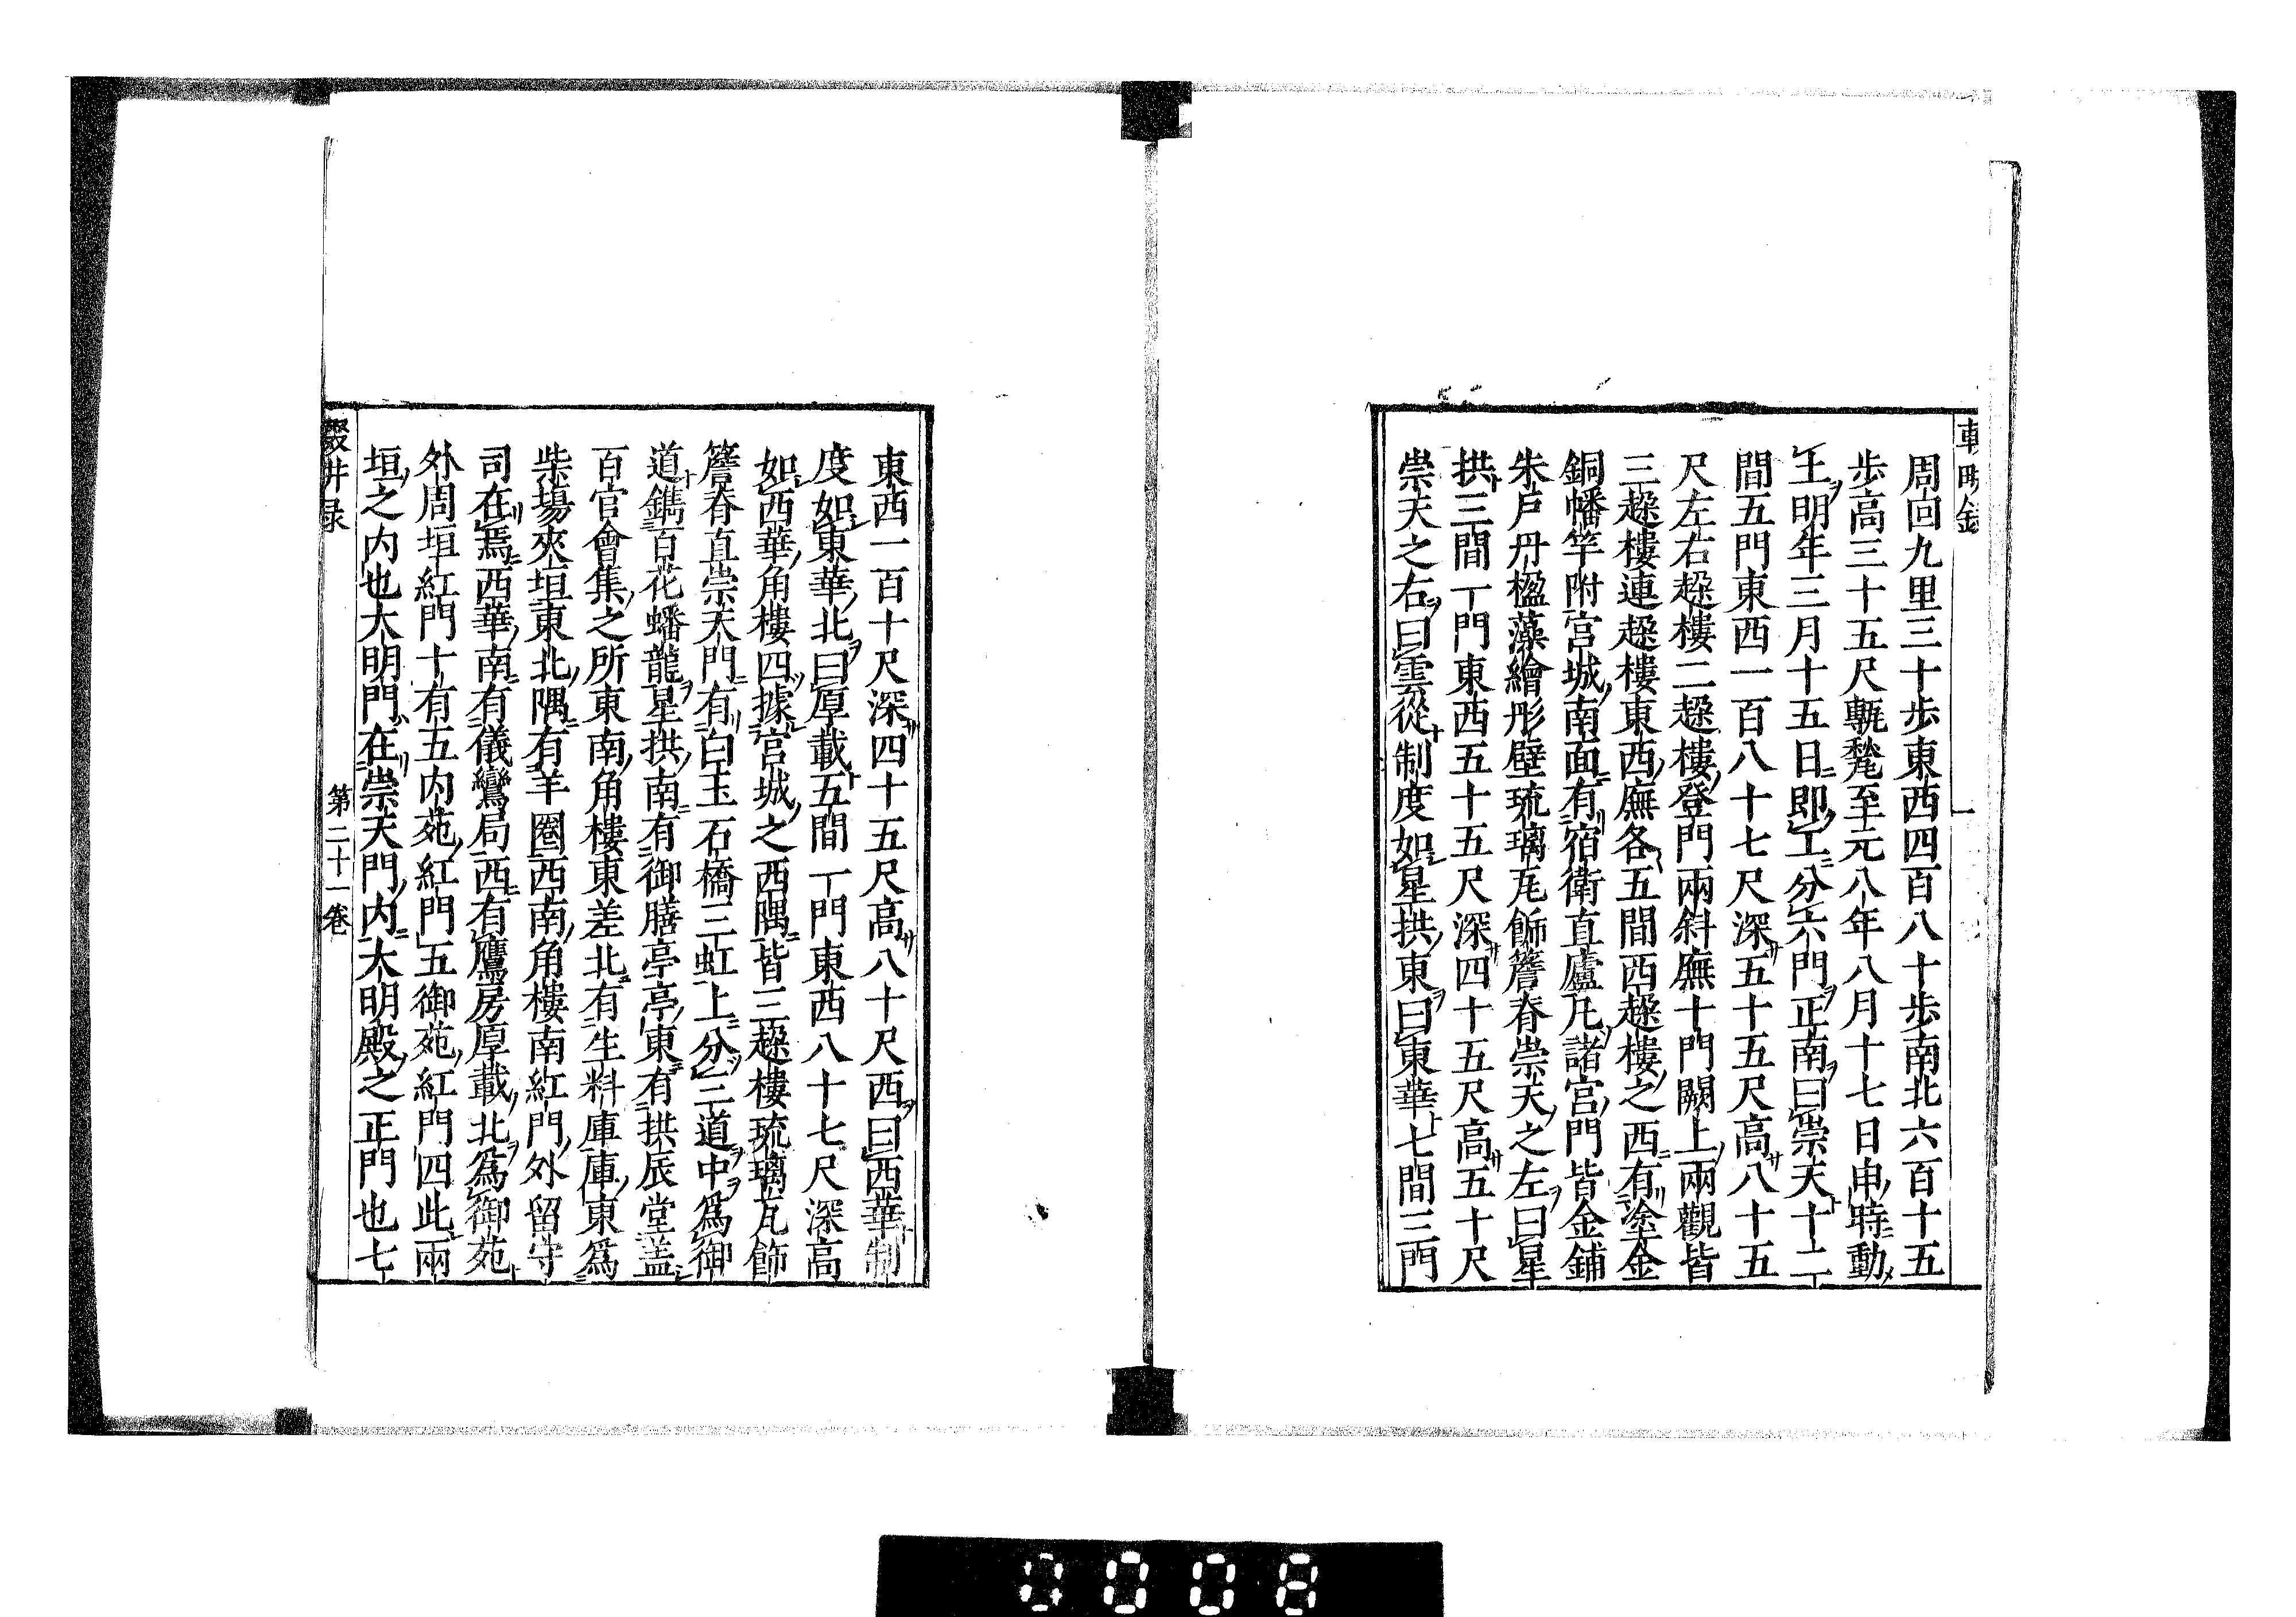 周回九里三十歩東西四百八十歩南北六百十五
歩高三十五尺甎甃至元八年八月十七日申時動
土明年三月十五日即工分六門正南曰崇天十二
間五門東西一百八十七尺深五十五尺高八十五
尺左右趓樓二趓樓登門兩斜廡十門闕上兩觀皆
三趓樓連趓樓東西廡各五間西趓樓之西有塗金
銅幡竿附宮城南面有宿衛直廬凡諸宮門皆金鋪
朱戸丹楹藻繪彤壁琉璃瓦飾簷脊崇天之左曰星
拱三間一門東西五十五尺深四十五尺高五十尺
崇天之右曰雲從制度如星拱東曰東華七間三門
東西一百十尺深四十五尺高八十尺西曰西華制
度如東華北曰厚載五間一門東西八十七尺深高
如西華角樓四據宮城之西隅皆三趓樓琉璃瓦飾
簷脊直崇天門有白玉石橋三虹上分三道中為御
道鐫百花蟠龍星拱南有御膳亭亭東有拱辰堂盖
百官會集之所東南角樓東差北有生料庫庫東為
柴場夾垣東北隅有羊圈西南角樓南紅門外留守
司在焉西華南有儀鸞局西有鷹房厚載北為御苑
外周垣紅門十有五内苑紅門五御苑紅門四此兩
垣之内也大明門在崇天門内大明殿之正門也七
第二十一卷